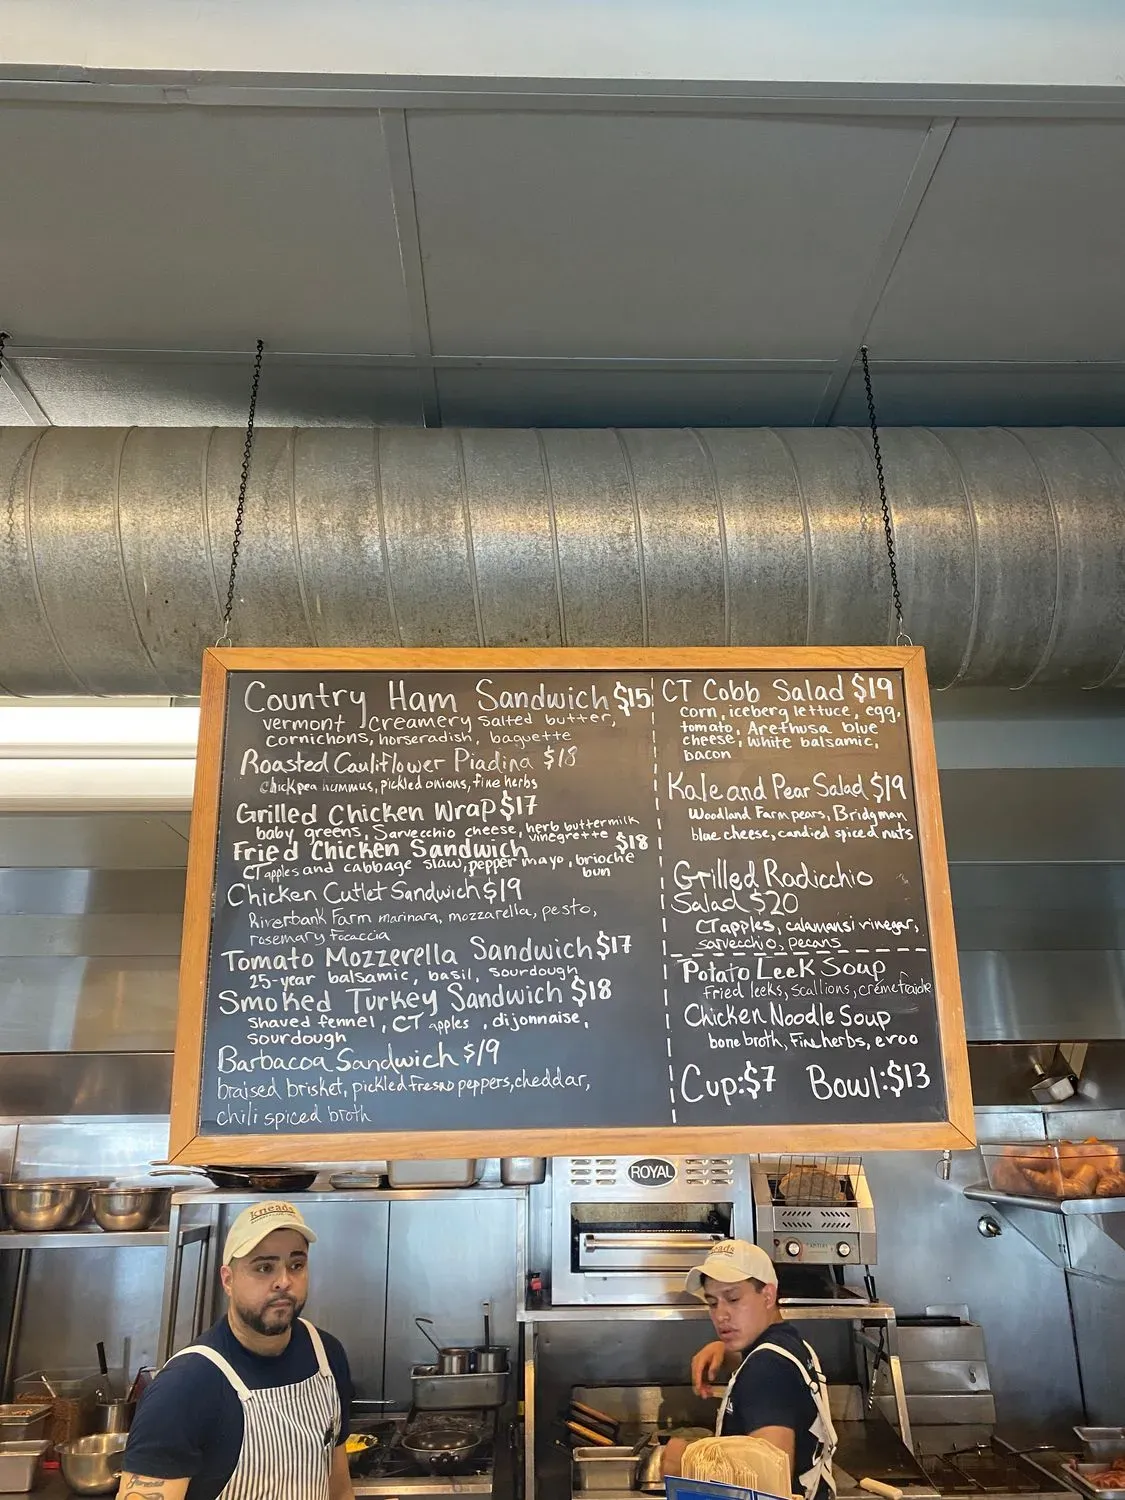 Country Ham Sandwich $15
vermont creamery salted butter,
cornichons, horseradish, baguette
Roasted Cauliflower Piadina $18
chickpea hummus, pickled onions, fine herbs
Grilled Chicken Wrap $17
baby greens, Sarvecchio cheese, herb buttermilk
vinegrette
Fried Chicken Sandwich $18
CT apples and cabbage slaw, pepper mayo, brioche
bun
Chicken Cutlet Sandwich $19
Riverbank Farm marinara, mozzarella, pesto,
rosemary focaccia
Tomato Mozzerella Sandwich $17
25-year balsamic, basil, sourdough
Smoked Turkey Sandwich $18
Shaved fennel, CT apples, dijonnaise,
sourdough
Barbacoa Sandwich $19
braised brisket, pickled fresno peppers, cheddar,
chili spiced broth
CT Cobb Salad $19
corn, iceberg lettuce, egg,
tomato, Arethusa blue
cheese, white balsamic,
bacon
Kale and Pear Salad $19
Woodland Farm pears, Bridgman
blue cheese, candied spiced nuts
Grilled Radicchio
Salad $20
CT apples, calamansi vinegar,
sarvecchio, pecans
Potato Leek Soup
Fried leeks, Scallions, crème fraiche
Chicken Noodle Soup
bone broth, Fine herbs, evoo
Cup:$7 Bowl:$13
ROYAL
kneads